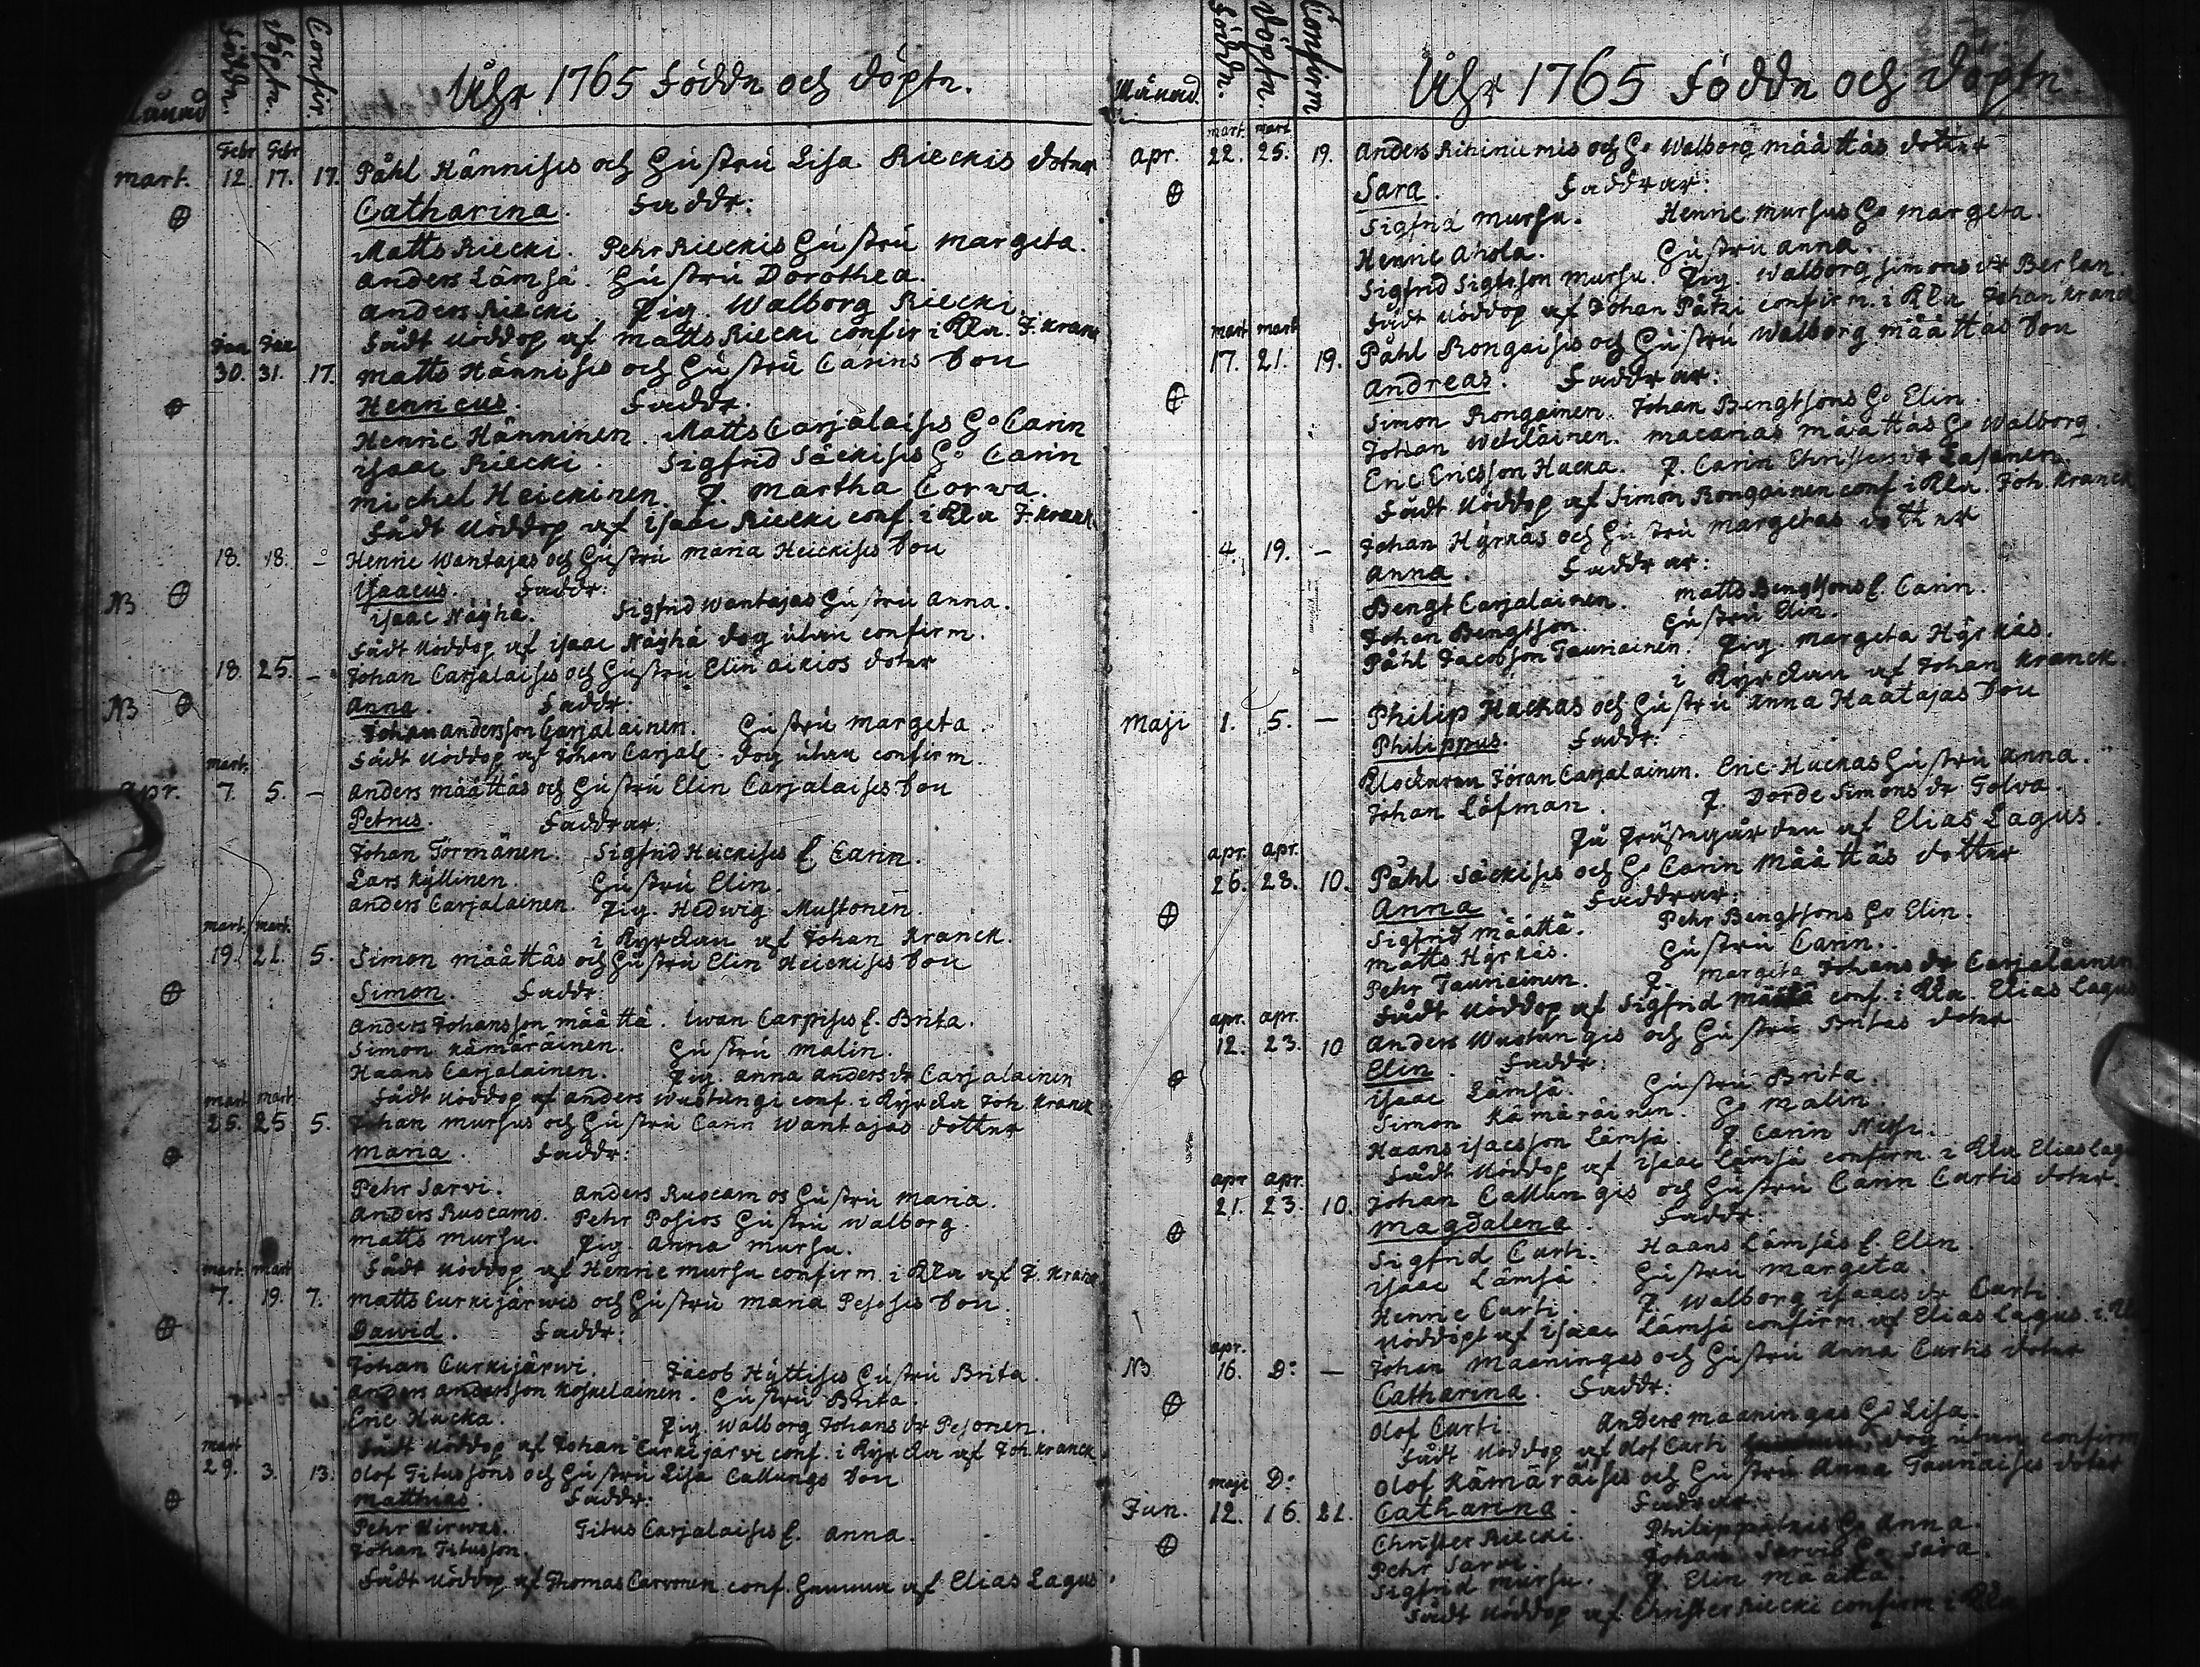 Månad Föddn. Döptn. Confir.
Åhr 1765 Föddn och döptn.
Febr Febr
mart. 12. 17. 17. Påhl Hännises och Hústrú Lisa Rieckis doter
Catharina. Faddr:
Matts Riecki. Pehr Rieckis Hústrú margeta.
anders Lämsä. Hústrú Dorothea.
anders Riecki. Pig. Walborg Riecki
Fådt nöddop af matts Riecki confir i Kka. J. Kranck
Jan Jan
30. 31. 17. matts Hännises och Hústrú Carins Son
Henricus. Faddr.
Henric Hänninen. Matts Carjalaises Ho Carin
isaac Riecki. Sigfrid Säckises Ho Carin
michel Heickinen. P. martha Corwa.
Fådt nöddop af isaac Riecki conf. i Kka J. Kranck
18. 18. – Henric Wantajas och Hústrú maria Heickises Son
NB Isaacus. Faddr:
isaac Näÿhä. Sigfrid Wantajas Hústrú anna.
Fådt nöddop af isaac Näÿhä dog útan confirm.
18. 25. – Johan Carjalaises och Hústrú Elin aikios doter
NB Anna. Faddr:
Johan andersson Carjalainen. Hústrú margeta
Fådt nöddop af Johan Carjal. dog útan confirm.
mart.
apr. 7. 5. – anders määttäs och Hústrú Elin Carjalaises Son
Petrus. Faddrar:
Johan Törmänen. Sigfrid Heickises h. Carin.
Lars Kyllinen. Hústrú Elin.
anders Carjalainen. Pig. Hedwig Mustonen.
i Kyrckan af Johan Kranck.
mart. mart.
19. 21. 5. Simon määttäs och Hústrú Elin Heickises Son
Simon. Faddr:
anders Johansson määttä. Iwan Carpises h. Brita.
Simon Kämäräinen. Hústrú malin.
Haans Carjalainen. Pig. anna anders dr Carjalainen
Fådt nöddop af anders Wuotungi conf. i Kyrcka Joh. Kranck
mart mart.
25. 25 5. Johan mursus och Hústrú Carin Wantajas dotter
maria. Faddr:
Pehr Sarvi. anders Ruocamos Hústrú maria.
anders Ruocamo. Pehr Posios Hústrú Walborg.
matts mursu. Pig. anna mursu.
Fådt nöddop af Henric mursu confirm. i Kka af J. Kranck
mart. mart
7. 19. 7. matts Curkijärwis och Hústrú maria Pesoses Son.
Dawid. Faddr:
Johan Curkijärwi. Jacob Hÿttises Hústrú Brita.
anders andersson Koskelainen. Hústrú Brita.
Eric Hucka. Pig. Walborg Johans dr Pesonen.
Fådt nöddop af Johan Curkijärvi conf. i Kyrcka af Joh. Kranck
mart
29. 3. 13. Olof Titussons och Hústrú Lisa Callungs Son
matthias. Faddr:
Pehr Hirwas. Titus Carjalaises h. anna.
Johan Titusson.
Fådt nöddop af Thomas Carvonen conf. hemma af Elias Lagus
Månad Föddn. Döptn. Confirm
Åhr 1765 Föddn och döptn.
mart. mart
apr. 22. 25. 19. anders Rihiniemis och Ho Walborg määttäs dotter
Sara. Faddrar:
Sigfrid mursu. Henric mursus Ho margeta.
Henric Ahola. Hústrú anna.
Sigfrid Sigfsson mursu. Pig. Walborg simons dr Berlan
Fådt nöddop af Johan Pätzi confirm. i Kka Johan Kranck
mart mart
17. 21. 19. Påhl Rongaises och Hústrú Walborg määttäs Son
andreas. Faddrar:
Simon Rongainen. Johan Bengtsons Ho Elin.
Johan Wetiläinen. macarias määttäs Ho Walborg.
Eric Ericsson Hucka. P. Carin Christers dr Lasanen.
Fådt nöddop af Simon Rongainen conf i Kka. Joh. Kranck
4. 19. – Johan Hÿrkäs och Hústrú margetas dotter
anna. Faddrar:
Bengt Carjalainen. matts Bengtsons h. Carin.
Johan Bengtson. Hústrú Elin.
Påhl Jacobson Tauriainen. Pig. margeta Hÿrkäs.
i Kyrckan af Johan Kranck.
Maji 1. 5. – Philip Huckas och Hústrú Anna Haatajas Son
Philippus. Faddr:
Klockaren Jöran Carjalainen. Eric Huckas Hústrú Anna.
Johan Löfman. P. Dorde Simons dr Tolva.
På Prästegården af Elias Lagus.
apr. apr.
26. 28. 10. Påhl Säckises och Ho Carin Määttäs dotter
Anna. Faddrar:
Sigfrid määttä. Pehr Bengtsons Ho Elin.
matts Hÿrkäs. Hústrú Carin.
Pehr Tauriainen. P. margeta Johans dr Carjalainen
Fådt nöddop af Sigfrid määttä conf. i Kka. Elias Lagus
apr. apr.
12. 23. 10 anders Wuotungis och Hústrú Britas doter
Elin. Faddr:
isaac Lämsä. Hústrú Brita.
Simon Kämäräinen. Ho malin.
Haans isacsson Lämsä. P. Carin Nissi.
Fådt nöddop af isaac Lämsä confirm. i Kka Elias Lagus
apr apr.
21. 23. 10. Johan Callungis och Hústrú Carin Curtis doter.
magdalena. Faddr:
Sigfrid Curti. Haans Lämsäs h. Elin.
isaac Lämsä. Hústrú margeta.
Henric Curti. P. Walborg isaacs dr Curti
nöddöpt af isaac Lämsä confirm. af Elias Lagus. i
apr.
NB 16. D: – Johan maaningas och Hústrú Anna Curtis doter
Catharina. Faddr:
Olof Curti. Anders maaningas Ho Lisa.
Fådt nöddop af Olof Curti dog útan confirm
maji D:
Olof Kämäräises och Hústrú Anna Tauriaises doter
Jun. 12. 16. 21. Catharina. Fadrar:
Christer Riecki. Philip pätzis Ho Anna
Pehr Sarvi. Johan Sarvis Ho Sara.
Sigfrid mursu. P. Elin määttä.
Fådt nöddop af Christer Riecki confirm i Kka